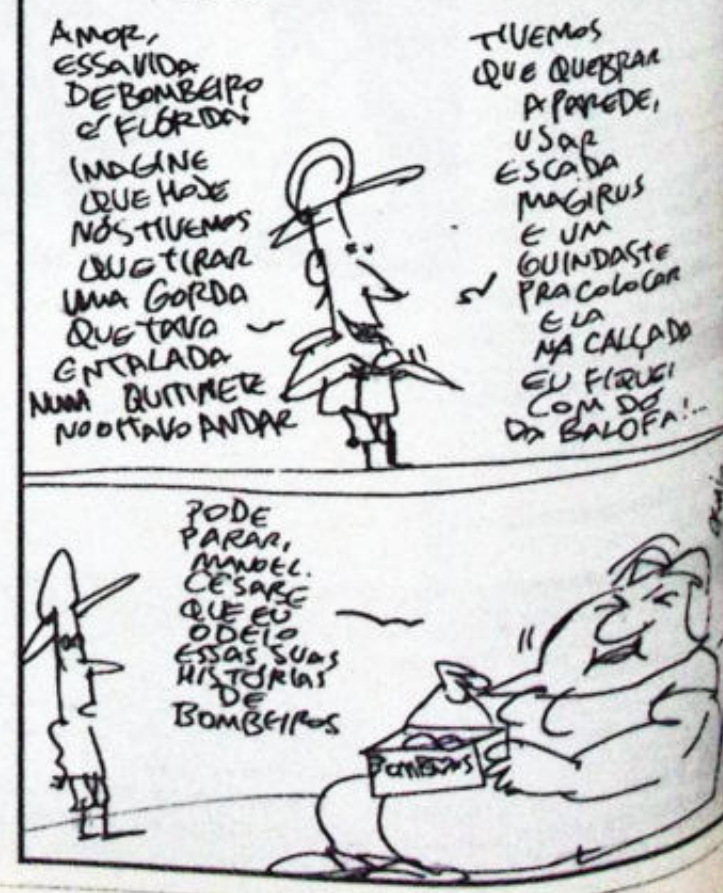 AMOR,
ESSA VIDA
DE BOMBEIRO
É FLÓRIDA!
IMAGINE
QUE HOJE
NÓS TIVEMOS
QUE TIRAR
UMA GORDA
QUE TAVA
ENTALADA
NUMA QUITINETE
NO OITAVO ANDAR
TIVEMOS
QUE QUEBRAR
A PAREDE,
USAR
ESCADA
MAGIRUS
E UM
GUINDASTE
PRA COLOCAR
ELA
NA CALÇADA
EU FIQUEI
COM DÓ
DA BALOFA!...
PODE
PARAR,
MANOEL.
CÊ SABE
QUE EU
ODEIO
ESSAS SUAS
HISTÓRIAS
DE
BOMBEIROS
BOMBONS